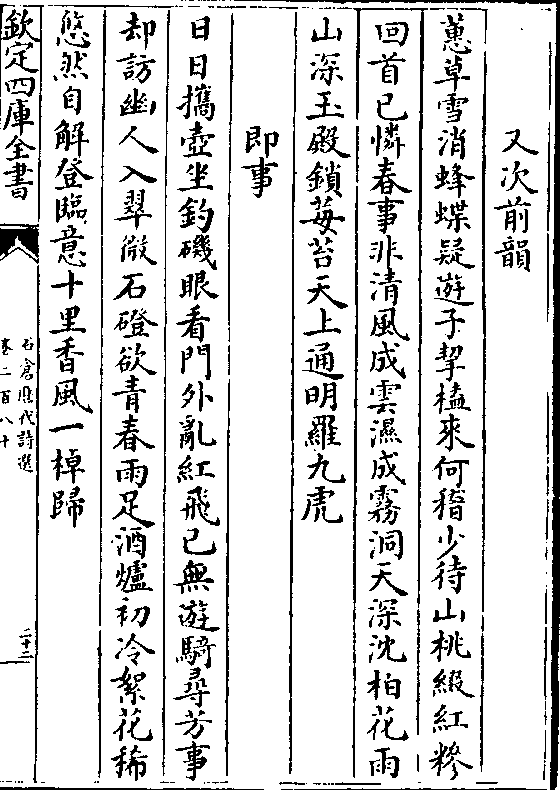 又次前韻
蕙草雪消蜂蝶疑遊子挈榼來何稽少待山桃綴紅糝
回首已憐春事非清風成雲濕成霧洞天深沈柏花雨
山深玉殿鎖莓苔天上通明羅九虎
即事
日日攜壺坐釣磯眼看門外亂紅飛已無遊騎尋芳事
却訪幽人入翠微石磴欲青春雨足酒爐初冷絮花稀
悠然自解登臨意十里香風一棹歸
欽定四庫全書
石倉歷代詩選
卷二百八十
二十二